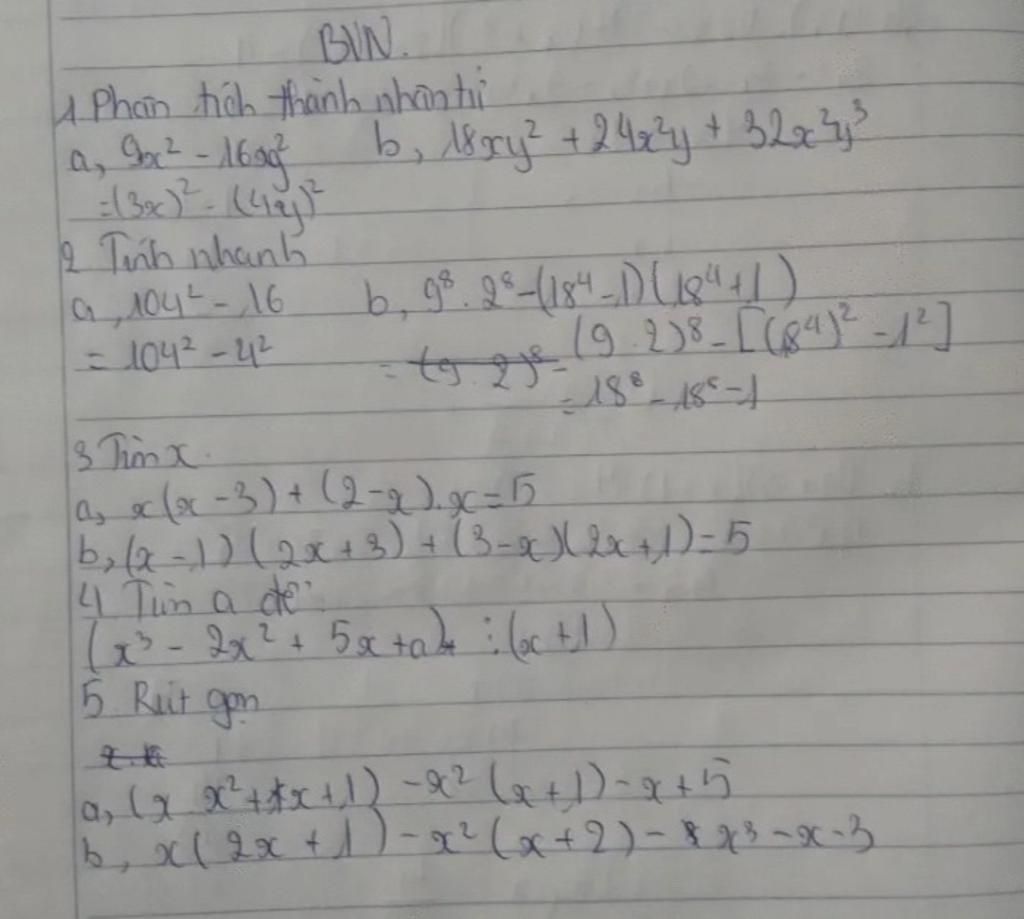 BVN.
1 Phân tích thành nhân tử
a, 9x² - 16y² b, 18xy² + 24x²y + 32x²y³
= (3x)² - (4y)²
2 Tính nhanh
a, 104² - 16 b, 9⁸ . 2⁸ - (18⁴ - 1)(18⁴ + 1)
= 104² - 4² = (9 . 2)⁸ - [(18⁴)² - 1²]
= 18⁸ - 18⁸ - 1
3 Tìm x.
a, x(x - 3) + (2 - x).x = 5
b, (x - 1)(2x + 3) + (3 - x)(2x + 1) = 5
4 Tìm a để:
(x³ - 2x² + 5x + a) ⋮ (x + 1)
5 Rút gọn
a, (x x² + x + 1) - x² (x + 1) - x + 5
b, x(2x + 1) - x² (x + 2) - x³ - x - 3